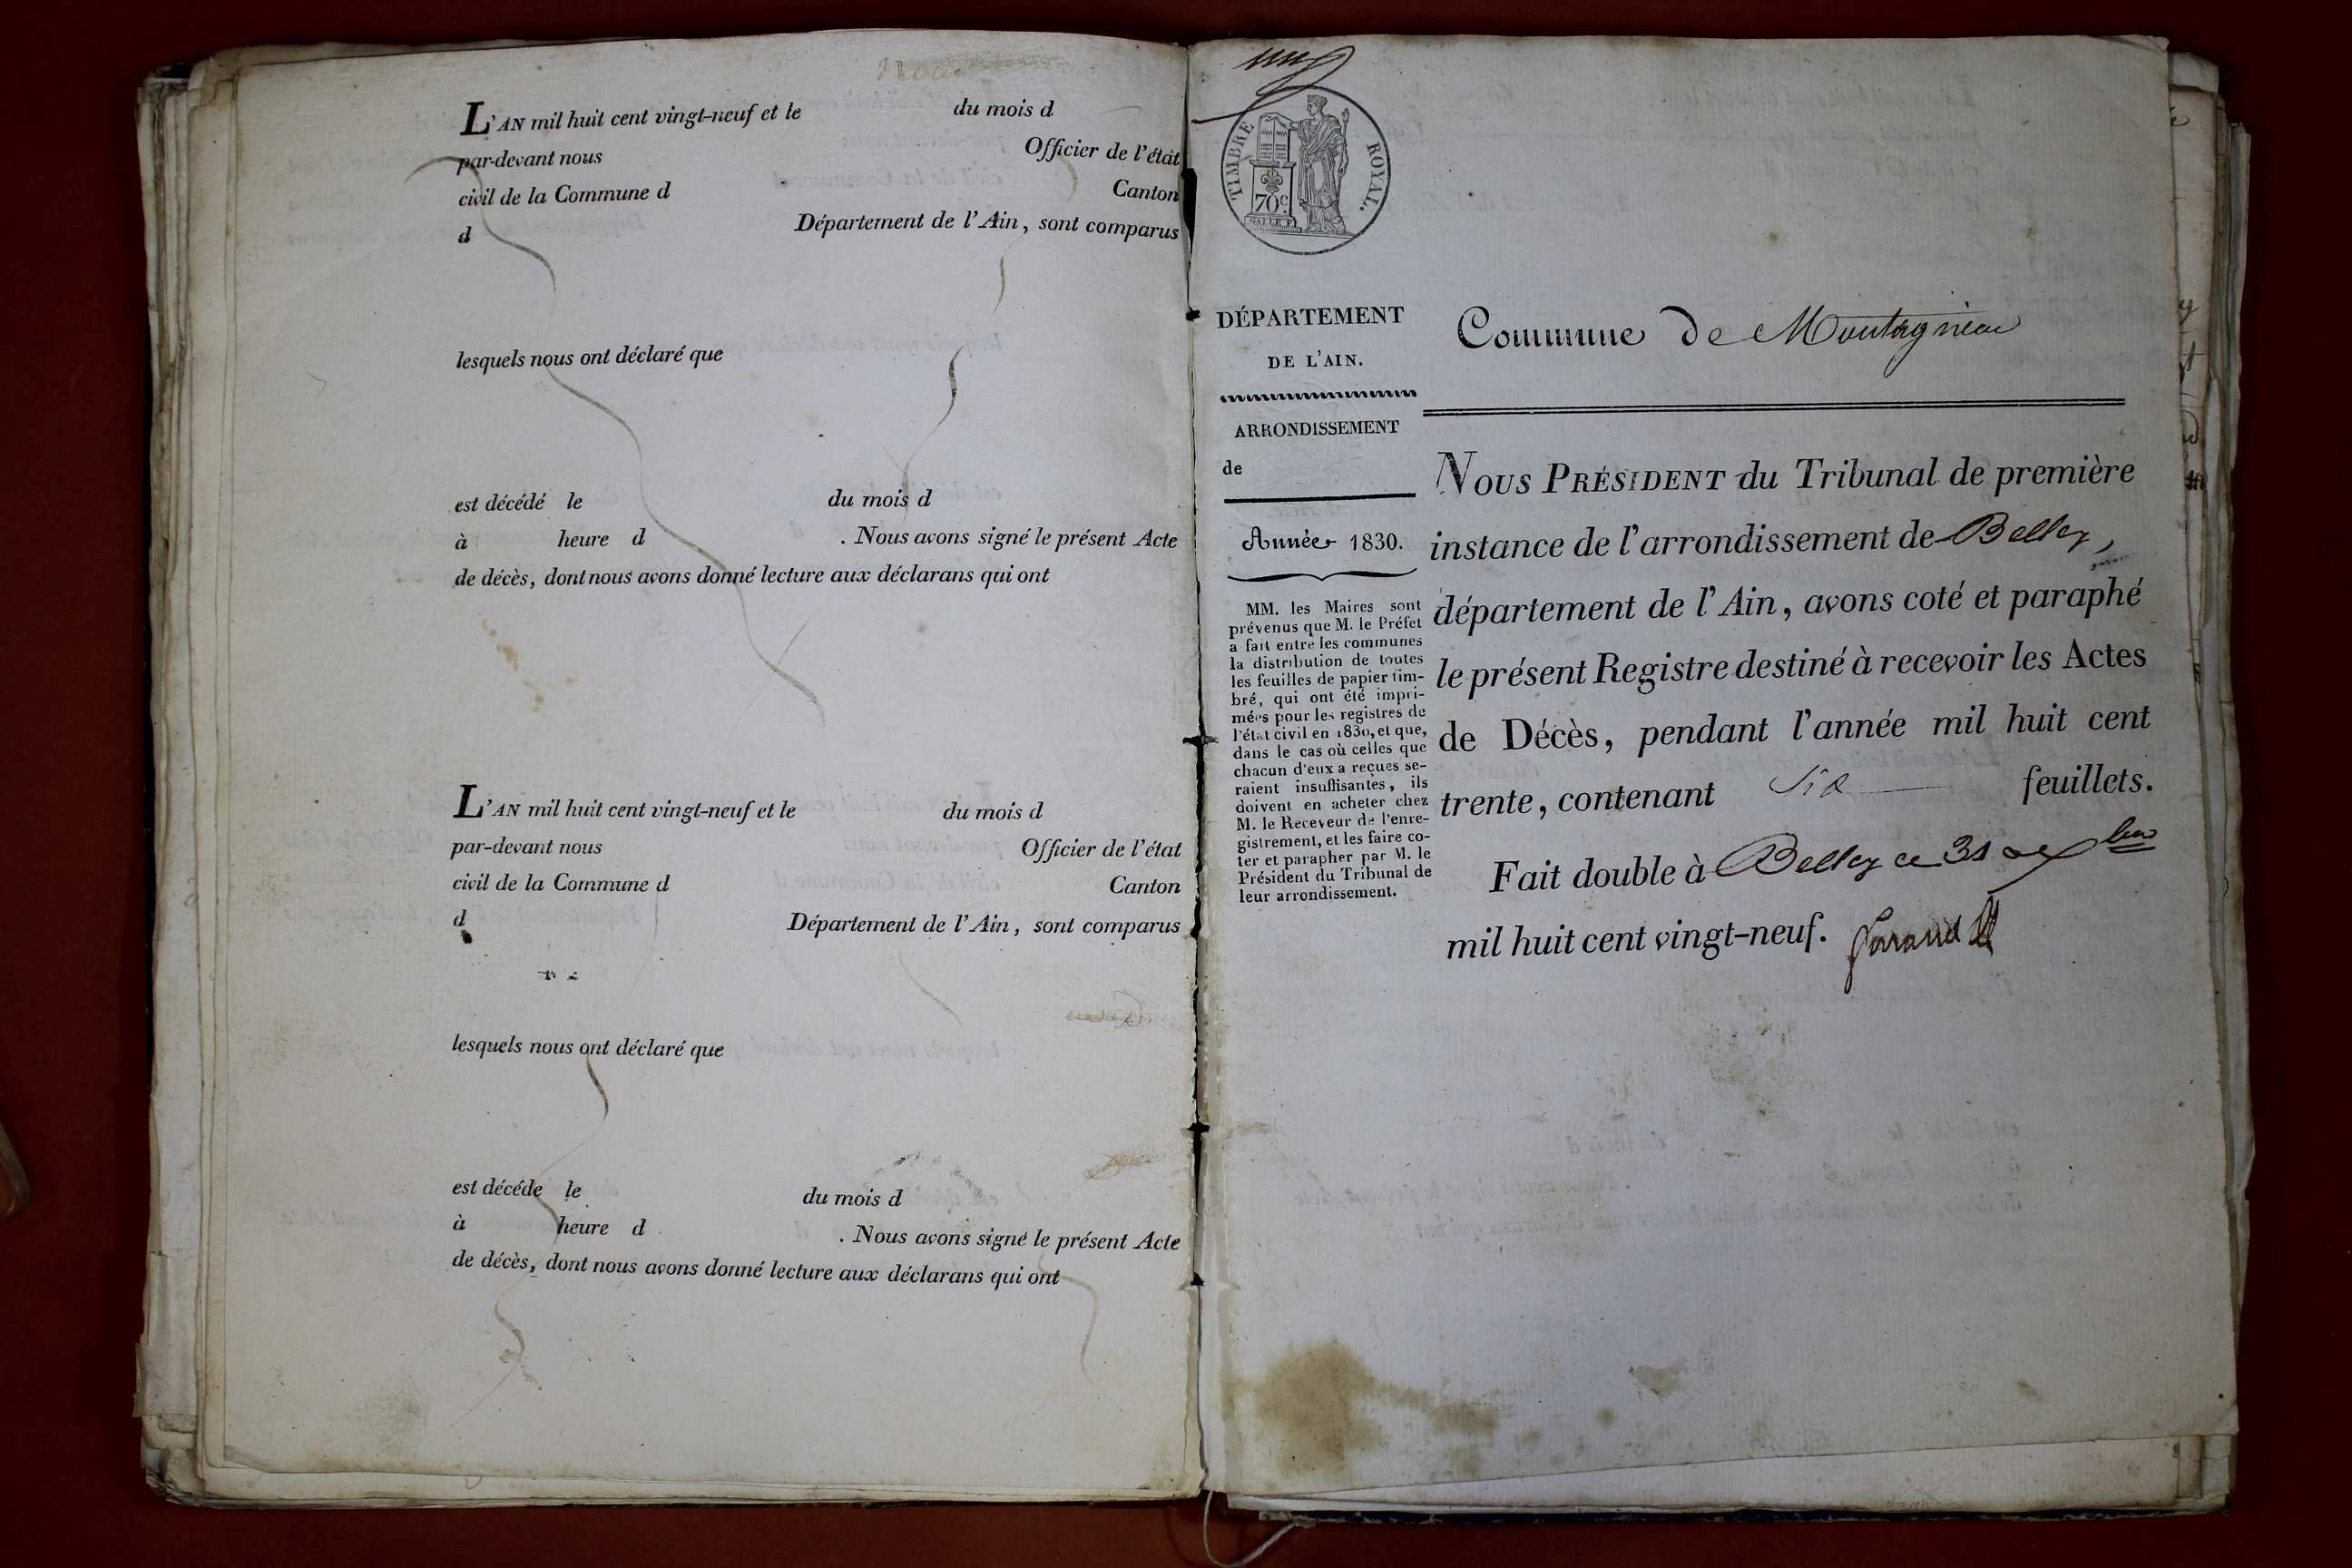 L'AN mil huit cent vingt-neuf et le du mois d
par-devant nous Officier de l'état
civil de la Commune d Canton
d Département de l'Ain, sont comparus
lesquels nous ont déclaré que
est décédé le du mois d
à heure d . Nous avons signé le présent Acte
de décès, dont nous avons donné lecture aux déclarans qui ont
L'AN mil huit cent vingt-neuf et le du mois d
par-devant nous Officier de l'état
civil de la Commune d Canton
d Département de l'Ain, sont comparus
lesquels nous ont déclaré que
est décéde le du mois d
à heure d . Nous avons signé le présent Acte
de décès, dont nous avons donné lecture aux déclarans qui ont
TIMBRE ROYAL.
70c.
DÉPARTEMENT
DE L'AIN.
ARRONDISSEMENT
de
Année 1830.
MM. les Maires sont
prévenus que M. le Préfet
a fait entre les communes
la distribution de toutes
les feuilles de papier tim-
bré, qui ont été impri-
mées pour les registres de
l'état civil en 1830, et que,
dans le cas où celles que
chacun d'eux a reçues se-
raient insuffisantes, ils
doivent en acheter chez
M. le Receveur de l'enre-
gistrement, et les faire co-
ter et parapher par M. le
Président du Tribunal de
leur arrondissement.
Commune de Montagnieu
NOUS PRÉSIDENT du Tribunal de première
instance de l'arrondissement de Belley,
département de l'Ain, avons coté et paraphé
le présent Registre destiné à recevoir les Actes
de Décès, pendant l'année mil huit cent
trente, contenant Six feuillets.
Fait double à Belley ce 31 xbre
mil huit cent vingt-neuf.